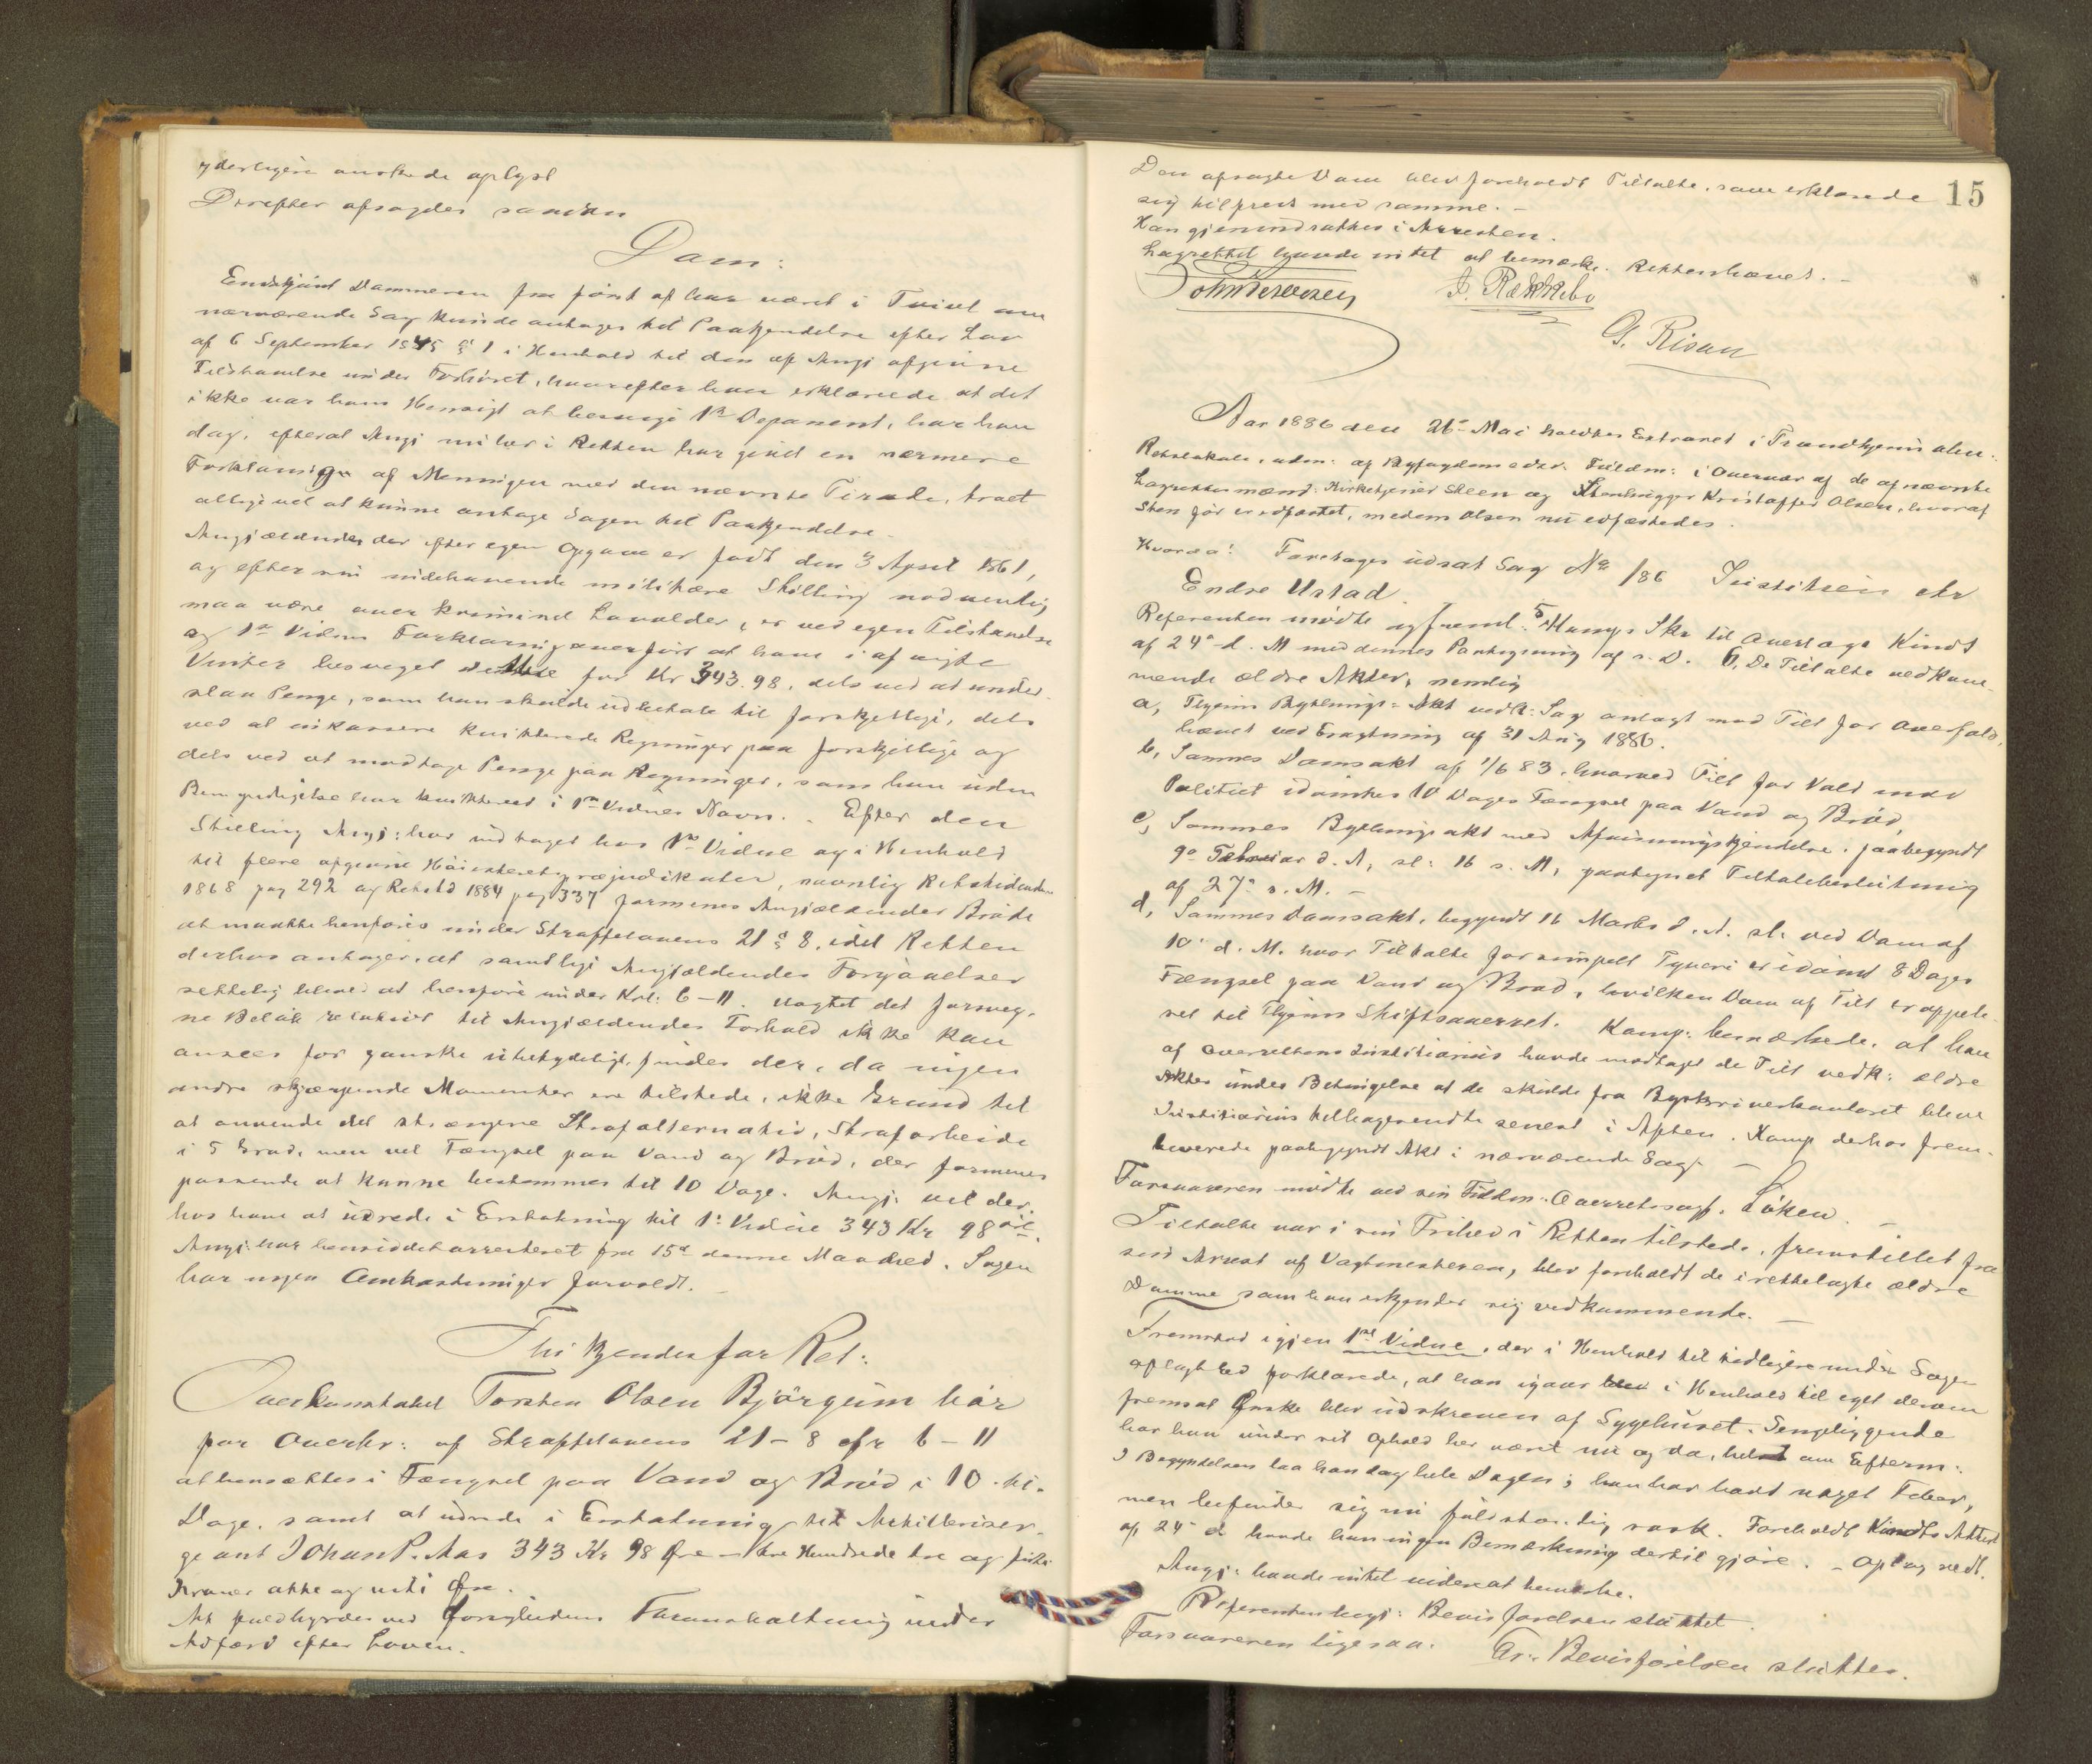 yderligere ønskede oplyst
Derefter afsagdes saadan
Dom:
Endskjønt Dommeren fra først af har været i Tvivl om
nærværende Sag kunde antages til Paakjendelse efter Lov
af 6 September 1845 § 1 i Henhold til den af Angj afgivne
Tilstaaelse under Forhøret, hvorefter han erklærede at det
ikke var hans Hensigt at besvige 1ste Deponent, har han
dog, efterat Angj nu her i Retten har givet en nærmere
Forklaring af Meningen med den nævnte Tirade, troet
alligevel at kunne antage Sagen til Paakjendelse.
Angjældende der efter egen Opgave er født den 3 April 1861,
og efter sin indehavende militære Stilling nødvendig
maa være over kriminel Lavalder, er ved egen Tilstaaelse
og 1ste Vidnes Forklaring overført at have i afvigte
Vinter besveget dette for Kr 343.98, dels ved at under-
slaa Penge, som han skulde udbetale til forskjellige, dels
ved at inkassere kvitterede Regninger paa forskjellige og
dels ved at modtage Penge paa Regninger, som han uden
Bemyndigelse har kvitteret i 1ste Vidnes Navn. - Efter den
Stilling Angj: har indtaget hos 1ste Vidne og i Henhold
til flere afgivne Høiesteretspræjudikater, navnlig Retstidende
1868 pag 292 og Retstid 1884 pag 337 formenes Angjældendes Brøde
at maatte henføres under Straffelovens 21 § 8, idet Retten
derhos antager, at samtlige Angjældendes Forgaaelser
rettelig bliver at henføre under Krl: 6-11. Uagtet det forveg-
ne Beløb relativt til Angjældendes Forhold ikke kan
ansees for ganske ubetydeligt, findes der, da ingen
andre skjærpende Momenter ere tilstede, ikke Grund til
at anvende det strængere Strafalternativ, Strafarbeide
i 5 Grad, men vel Fængsel paa Vand og Brød, der formenes
passende at kunne bestemmes til 10 Dage. Angj: vil der-
hos have at udrede i Erstatning til 1ste Vidne 343 Kr 98 Øre.
Angj: har hensiddet arresteret fra 15de denne Maaned. Sagen
har ingen Omkostninger forvoldt.
Thi kjendes for Ret:
Overkonstabel Torsten Olsen Bjørgum bør
for Overtr: af Straffelovens 21-8 cfr 6-11
at hensættes i Fængsel paa Vand og Brød i 10 - ti -
Dage, samt at udrede i Erstatning til Artilleriser-
geant Johan P. Aas 343 Kr 98 Øre - tre Hundrede tre og firti
Kroner otte og niti Øre.
At fuldbyrdes ved Øvrighedens Foranstaltning under
Adfærd efter Loven.
15
Den afsagte Dom blev foreholdt Tiltalte, som erklærede
sig tilfreds med samme. -
Han gjenindsattes i Arresten.
Lagrettet havde intet at bemærke. Retten hævet. -
J. Rækkebo
G. Risan
Aar 1886 den 26de Mai holdtes Extraret i Trondhjem i alm:
Retslokale, adm: af Byfogdens edsv: Fuldm: i Overvær af de opnævnte
Lagrettesmænd: Kirketjener Steen og Stenhugger Kristoffer Olsen, hvoraf
Sten før er edfæstet, medens Olsen nu edfæstedes.
Hvorda: Foretoges udsat Sag No /86 Justitsen ctr
Endre Ustad.
Referenten mødte og freml: 5, Kamps Skr til Overlæge Kindt
af 24de d. M med dennes Paategning af s. D. 6, De Tiltalte vedkom-
mende ældre Akter, nemlig
a, Thjems Bythings-Akt vedk: Sag anlagt mod Tilt for Overfald,
hævet ved Eragtning af 31 Aug 1880.
b, Sammes Domsakt af 1/6 83, hvorved Tilt for Vold mod
Politiet idømtes 10 Dages Fængsel paa Vand og Brød,
c, Sammes Bythingsakt med Afvisningskjendelse, paabegyndt
9de Februar d. A, sl: 16 s. M, paategnet Tiltalebeslutning
af 27de s. M. -
d, Sammes Domsakt, begyndt 16 Marts d. A. sl. ved Dom af
10de d. M. hvor Tiltalte for simpelt Tyveri er idømt 8 Dages
Fængsel paa Vand og Brød, hvilken Dom af Tilt er appelle-
ret til Thjems Stiftsoverret. Kamp: bemærkede, at han
af Overrettens Justitiarius havde modtaget de Tilt vedk: ældre
Akter under Betingelse at de skulde fra Byskriverkontoret blive
Justitiarius tilbagesendte senest i Aften. Kamp derhos frem-
leverede paabegyndt Akt i nærværende Sag. -
Forsvareren mødte ved sin Fuldm: Overretssagf. Løken. -
Tiltalte var i sin Frihed i Retten tilstede, fremstillet fra
sin Arrest af Vagtmesteren, blev foreholdt de irettelagte ældre
Domme som han erkjender sig vedkommende. -
Fremstod igjen 1ste Vidne, der i Henhold til tidligere under Sagen
aflagt Ed forklarede, at han igaar blev i Henhold til eget derom
fremsat Ønske blev udskreven af Sygehuset. Sengeliggende
har han under sit Ophold her været nu og da, helst om Efterm:
I Begyndelsen laa han dog hele Dagen; han har havt noget Feber,
men befinder sig nu fuldstændig rask. Foreholdt Kindts Attest
af 24de d. havde han ingen Bemærkning dertil gjøre. - Opl og vedt.
Angj: havde intet videre at bemærke.
Referenten begj: Bevisførelsen sluttet.
Forsvareren ligesaa. Er: Bevisførelsen sluttes.